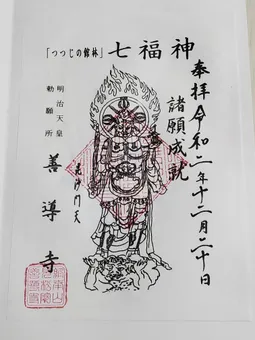 「つつじの館林」七福神
奉拝 令和二年十二月二十日
諸願成就
毘沙門天
明治天皇
勅願所
善導寺